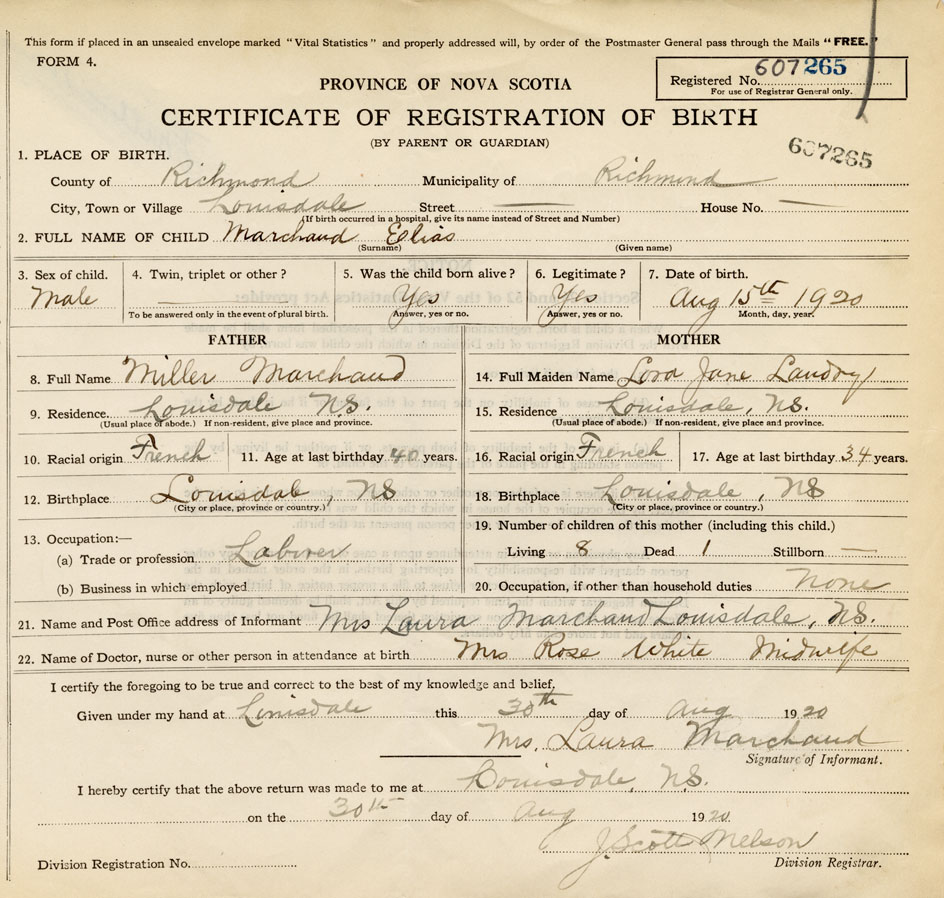 This form if placed in an unsealed envelope marked "Vital Statistics" and properly addressed will, by order of the Postmaster General pass through the Mails "FREE."
FORM 4.
PROVINCE OF NOVA SCOTIA
Registered No. 607265
For use of Registrar General only.
CERTIFICATE OF REGISTRATION OF BIRTH
(BY PARENT OR GUARDIAN)
607265
1. PLACE OF BIRTH.
County of Richmond Municipality of Richmond
City, Town or Village Louisdale Street — House No. —
(If birth occurred in a hospital, give its name instead of Street and Number)
2. FULL NAME OF CHILD Marchand Elias
(Surname) (Given name)
3. Sex of child. 4. Twin, triplet or other? 5. Was the child born alive? 6. Legitimate? 7. Date of birth.
Male — Yes Yes Aug 15th 1920
To be answered only in the event of plural birth. Answer, yes or no. Answer, yes or no. Month, day, year.
FATHER MOTHER
8. Full Name Miller Marchand 14. Full Maiden Name Lora Jane Landry
9. Residence. Louisdale N.S. 15. Residence Louisdale, N.S.
(Usual place of abode.) If non-resident, give place and province. (Usual place of abode.) If non-resident, give place and province.
10. Racial origin French 11. Age at last birthday 40 years. 16. Racial origin French 17. Age at last birthday 34 years.
12. Birthplace Louisdale, NS 18. Birthplace Louisdale, NS
(City or place, province or country.) (City or place, province or country.)
13. Occupation:— 19. Number of children of this mother (including this child.)
(a) Trade or profession Laborer Living 8 Dead 1 Stillborn —
(b) Business in which employed 20. Occupation, if other than household duties None
21. Name and Post Office address of Informant Mrs Laura Marchand Louisdale, N.S.
22. Name of Doctor, nurse or other person in attendance at birth Mrs Rose White Midwife
I certify the foregoing to be true and correct to the best of my knowledge and belief.
Given under my hand at Louisdale this 30th day of Aug 1920
Mrs. Laura Marchand
Signature of Informant.
I hereby certify that the above return was made to me at Louisdale, N.S.
on the 30th day of Aug 1920
J. Scott Nelson
Division Registration No. Division Registrar.